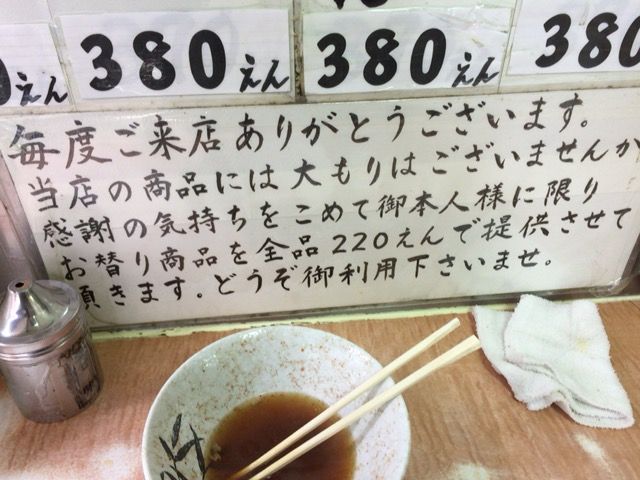 380えん
380えん
380
えん
毎度ご来店ありがとうございます。
当店の商品には大もりはございませんが
感謝の気持ちをこめて御本人様に限り
お替り商品を全品220えんで提供させて
頂きます。どうぞ御利用下さいませ。